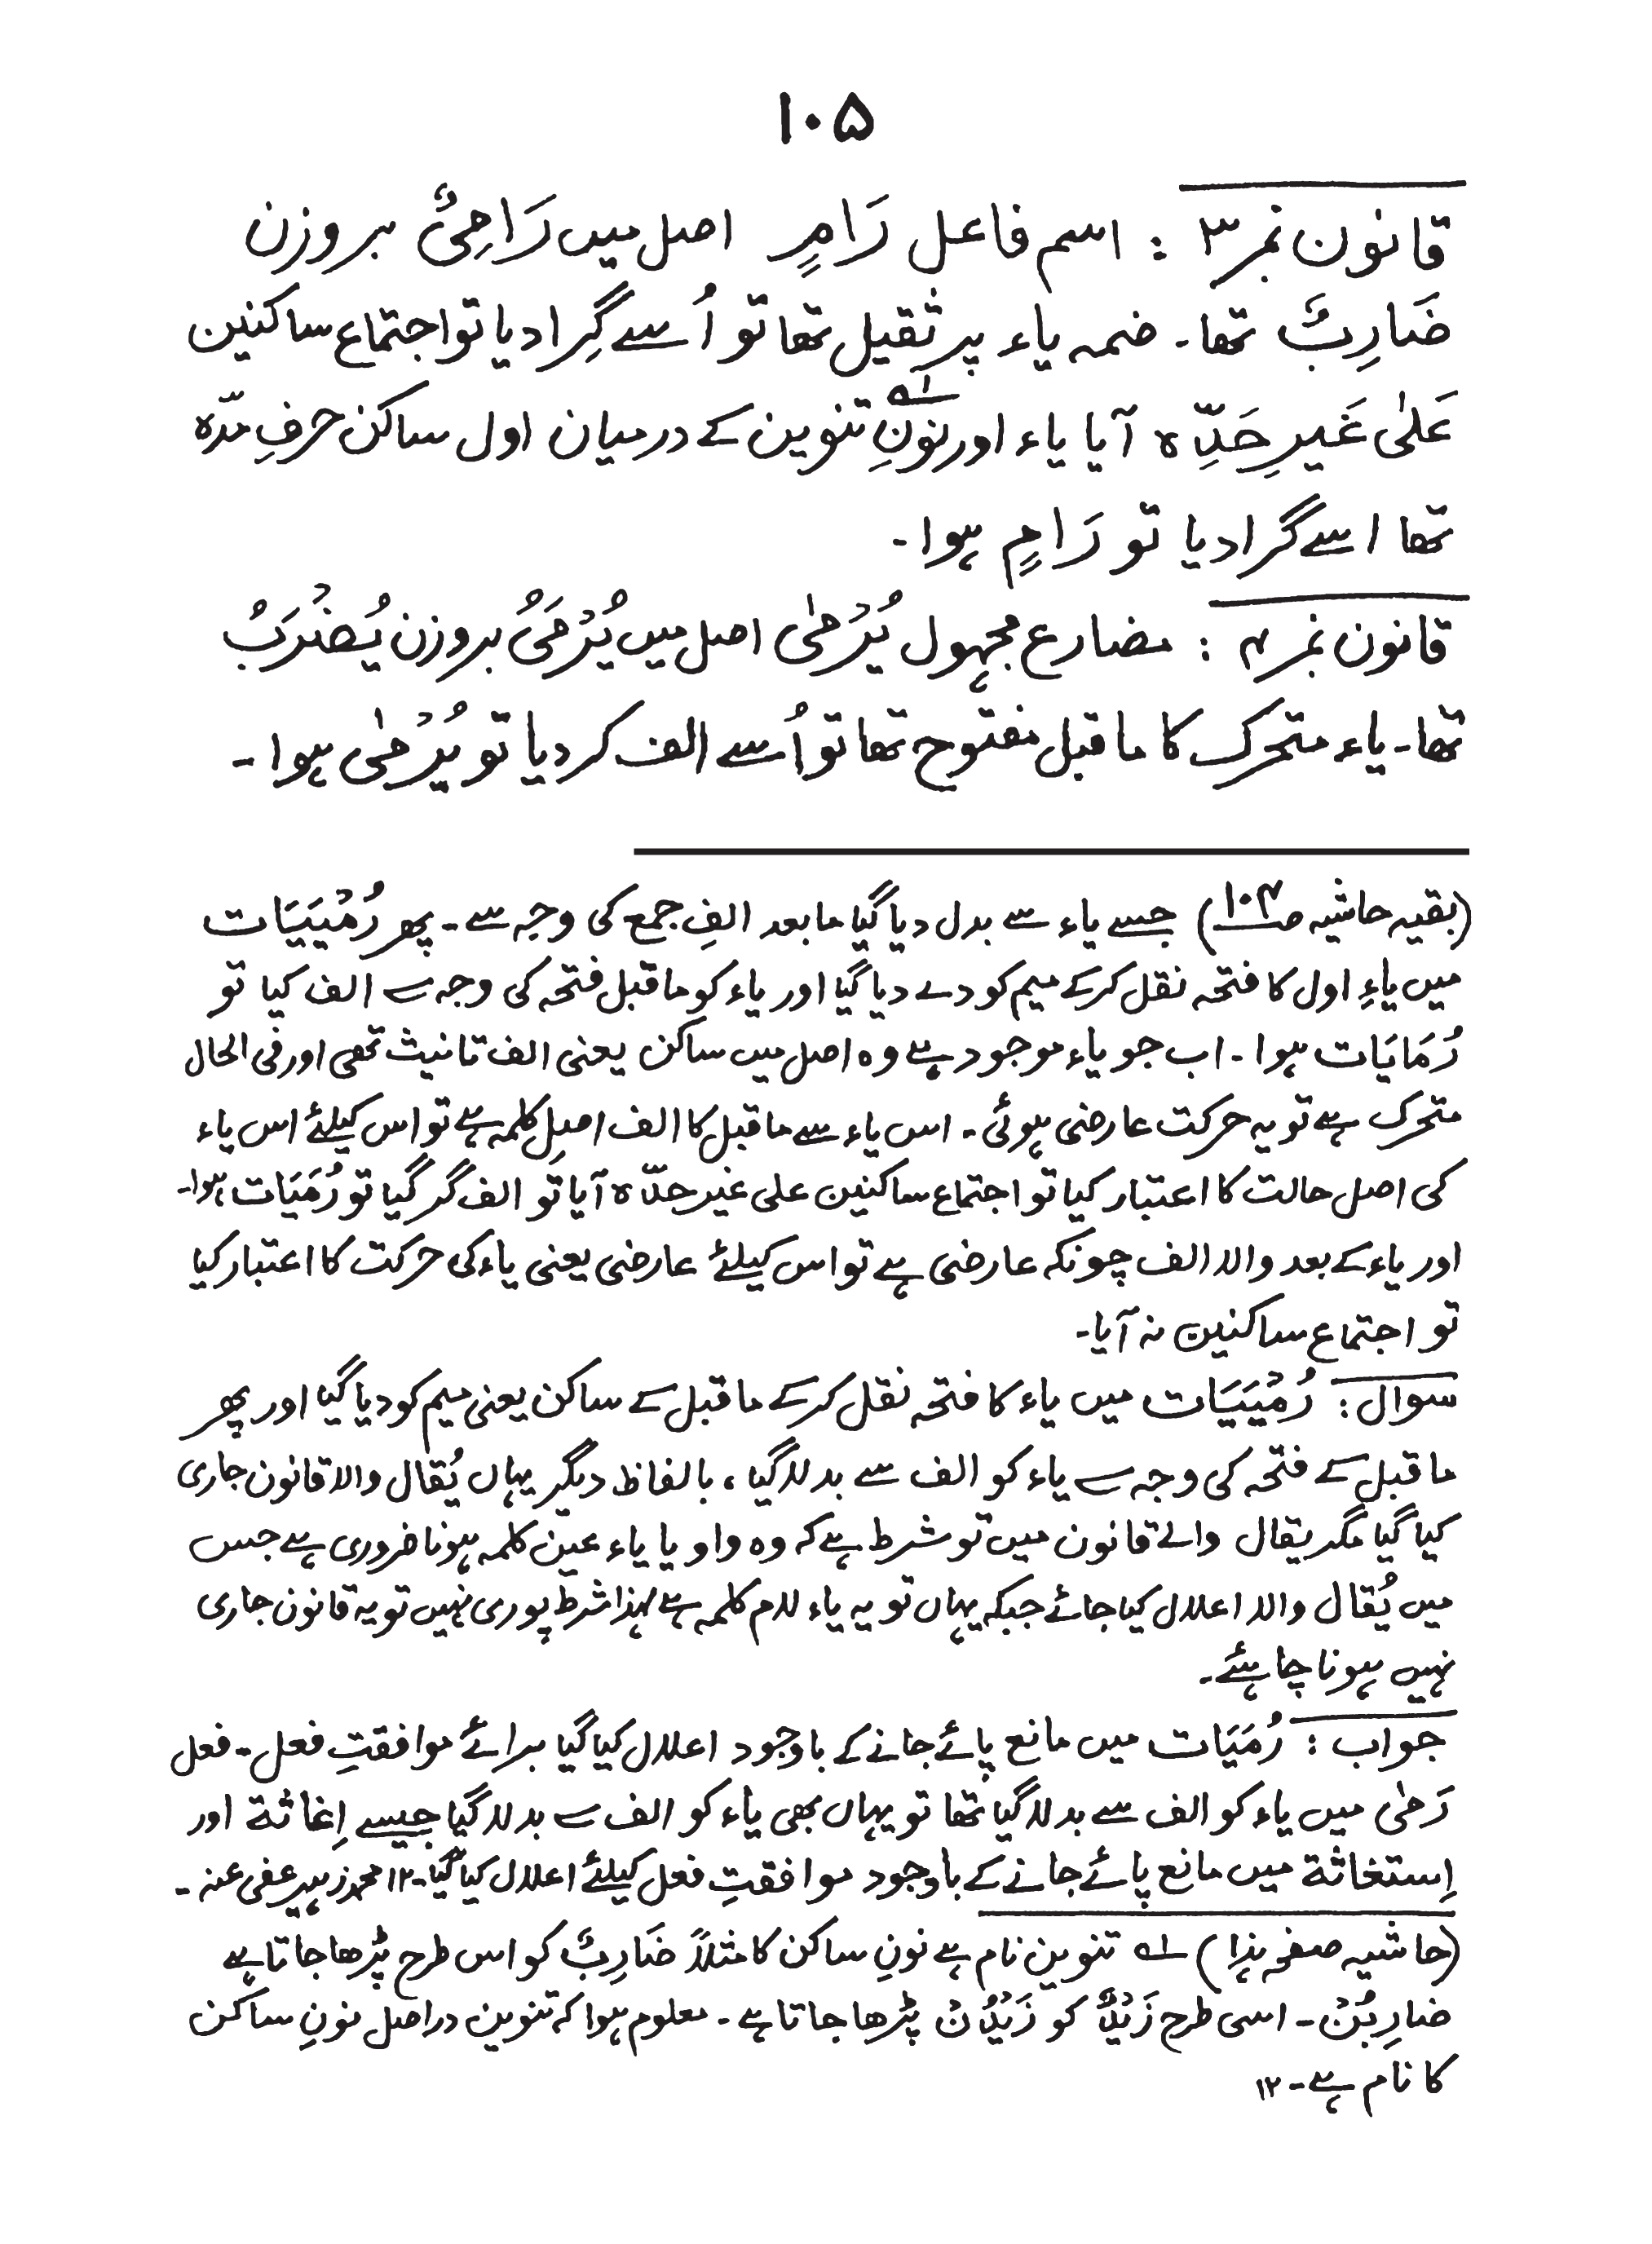 ۱۰۵
قانون نمبر ۳ : اسم فاعل رَامٍ اصل میں رَامِیٌ بروزن
ضَارِبٌ تھا۔ ضمہ یاء پر ثقیل تھا تو اُسے گِرا دیا تو اجتماع ساکنین
عَلٰی غَیرِ حَدِّہ آیا یاء اور نونِ تنوین ۱ے کے درمیان اول ساکن حرفِ مدّہ
تھا اسے گرا دیا تو رَامٍ ہوا۔
قانون نمبر ۴ : مضارع مجہول یُرْمٰی اصل میں یُرْمَیُ بروزن یُضْرَبُ
تھا۔ یاء متحرک کا ماقبل مفتوح تھا تو اُسے الف کر دیا تو یُرْمٰی ہوا۔
(بقیہ حاشیہ صـ۱۰۴) جسے یاء سے بدل دیا گیا مابعد الفِ جمع کی وجہ سے۔ پھر رُمْیَیَات
میں یاءِ اول کا فتحہ نقل کرکے میم کو دے دیا گیا اور یاء کو ماقبل فتحہ کی وجہ سے الف کیا تو
رُمَایَات ہوا۔ اب جو یاء موجود ہے وہ اصل میں ساکن یعنی الف تانیث تھی اور فی الحال
متحرک ہے تو یہ حرکت عارضی ہوئی۔ اس یاء سے ماقبل کا الف اصلِ کلمہ ہے تو اس کیلئے اس یاء
کی اصل حالت کا اعتبار کیا تو اجتماع ساکنین علی غیر حدّہ آیا تو الف گر گیا تو رُمَیَات ہوا۔
اور یاء کے بعد والا الف چونکہ عارضی ہے تو اس کیلئے عارضی یعنی یاء کی حرکت کا اعتبار کیا
تو اجتماع ساکنین نہ آیا۔
سوال : رُمْیَیَات میں یاء کا فتحہ نقل کرکے ماقبل کے ساکن یعنی میم کو دیا گیا اور پھر
ماقبل کے فتحہ کی وجہ سے یاء کو الف سے بدلا گیا، بالفاظ دیگر یہاں یُقال والا قانون جاری
کیا گیا مگر یقال والے قانون میں تو شرط ہے کہ وہ واو یا یاء عین کلمہ ہونا ضروری ہے جس
میں یُقال والا اعلال کیا جائے جبکہ یہاں تو یہ یاء لام کلمہ ہے لہذا شرط پوری نہیں تو یہ قانون جاری
نہیں ہونا چاہئے۔
جواب : رُمَیَات میں مانع پائے جانے کے باوجود اعلال کیا گیا برائے موافقتِ فعل۔ فعل
رَمٰی میں یاء کو الف سے بدلا گیا تھا تو یہاں بھی یاء کو الف سے بدلا گیا جیسے اِغاثۃ اور
اِستغاثۃ میں مانع پائے جانے کے باوجود موافقتِ فعل کیلئے اعلال کیا گیا۔ ۱۲ محمد زہیر عفی عنہ۔
(حاشیہ صفحہ ہذا) ۱ے تنوین نام ہے نونِ ساکن کا مثلاً ضَارِبٌ کو اس طرح پڑھا جاتا ہے
ضارِبُنْ۔ اسی طرح زَیْدٌ کو زَیْدُنْ پڑھا جاتا ہے۔ معلوم ہوا کہ تنوین دراصل نونِ ساکن
کا نام ہے۔ ۱۲